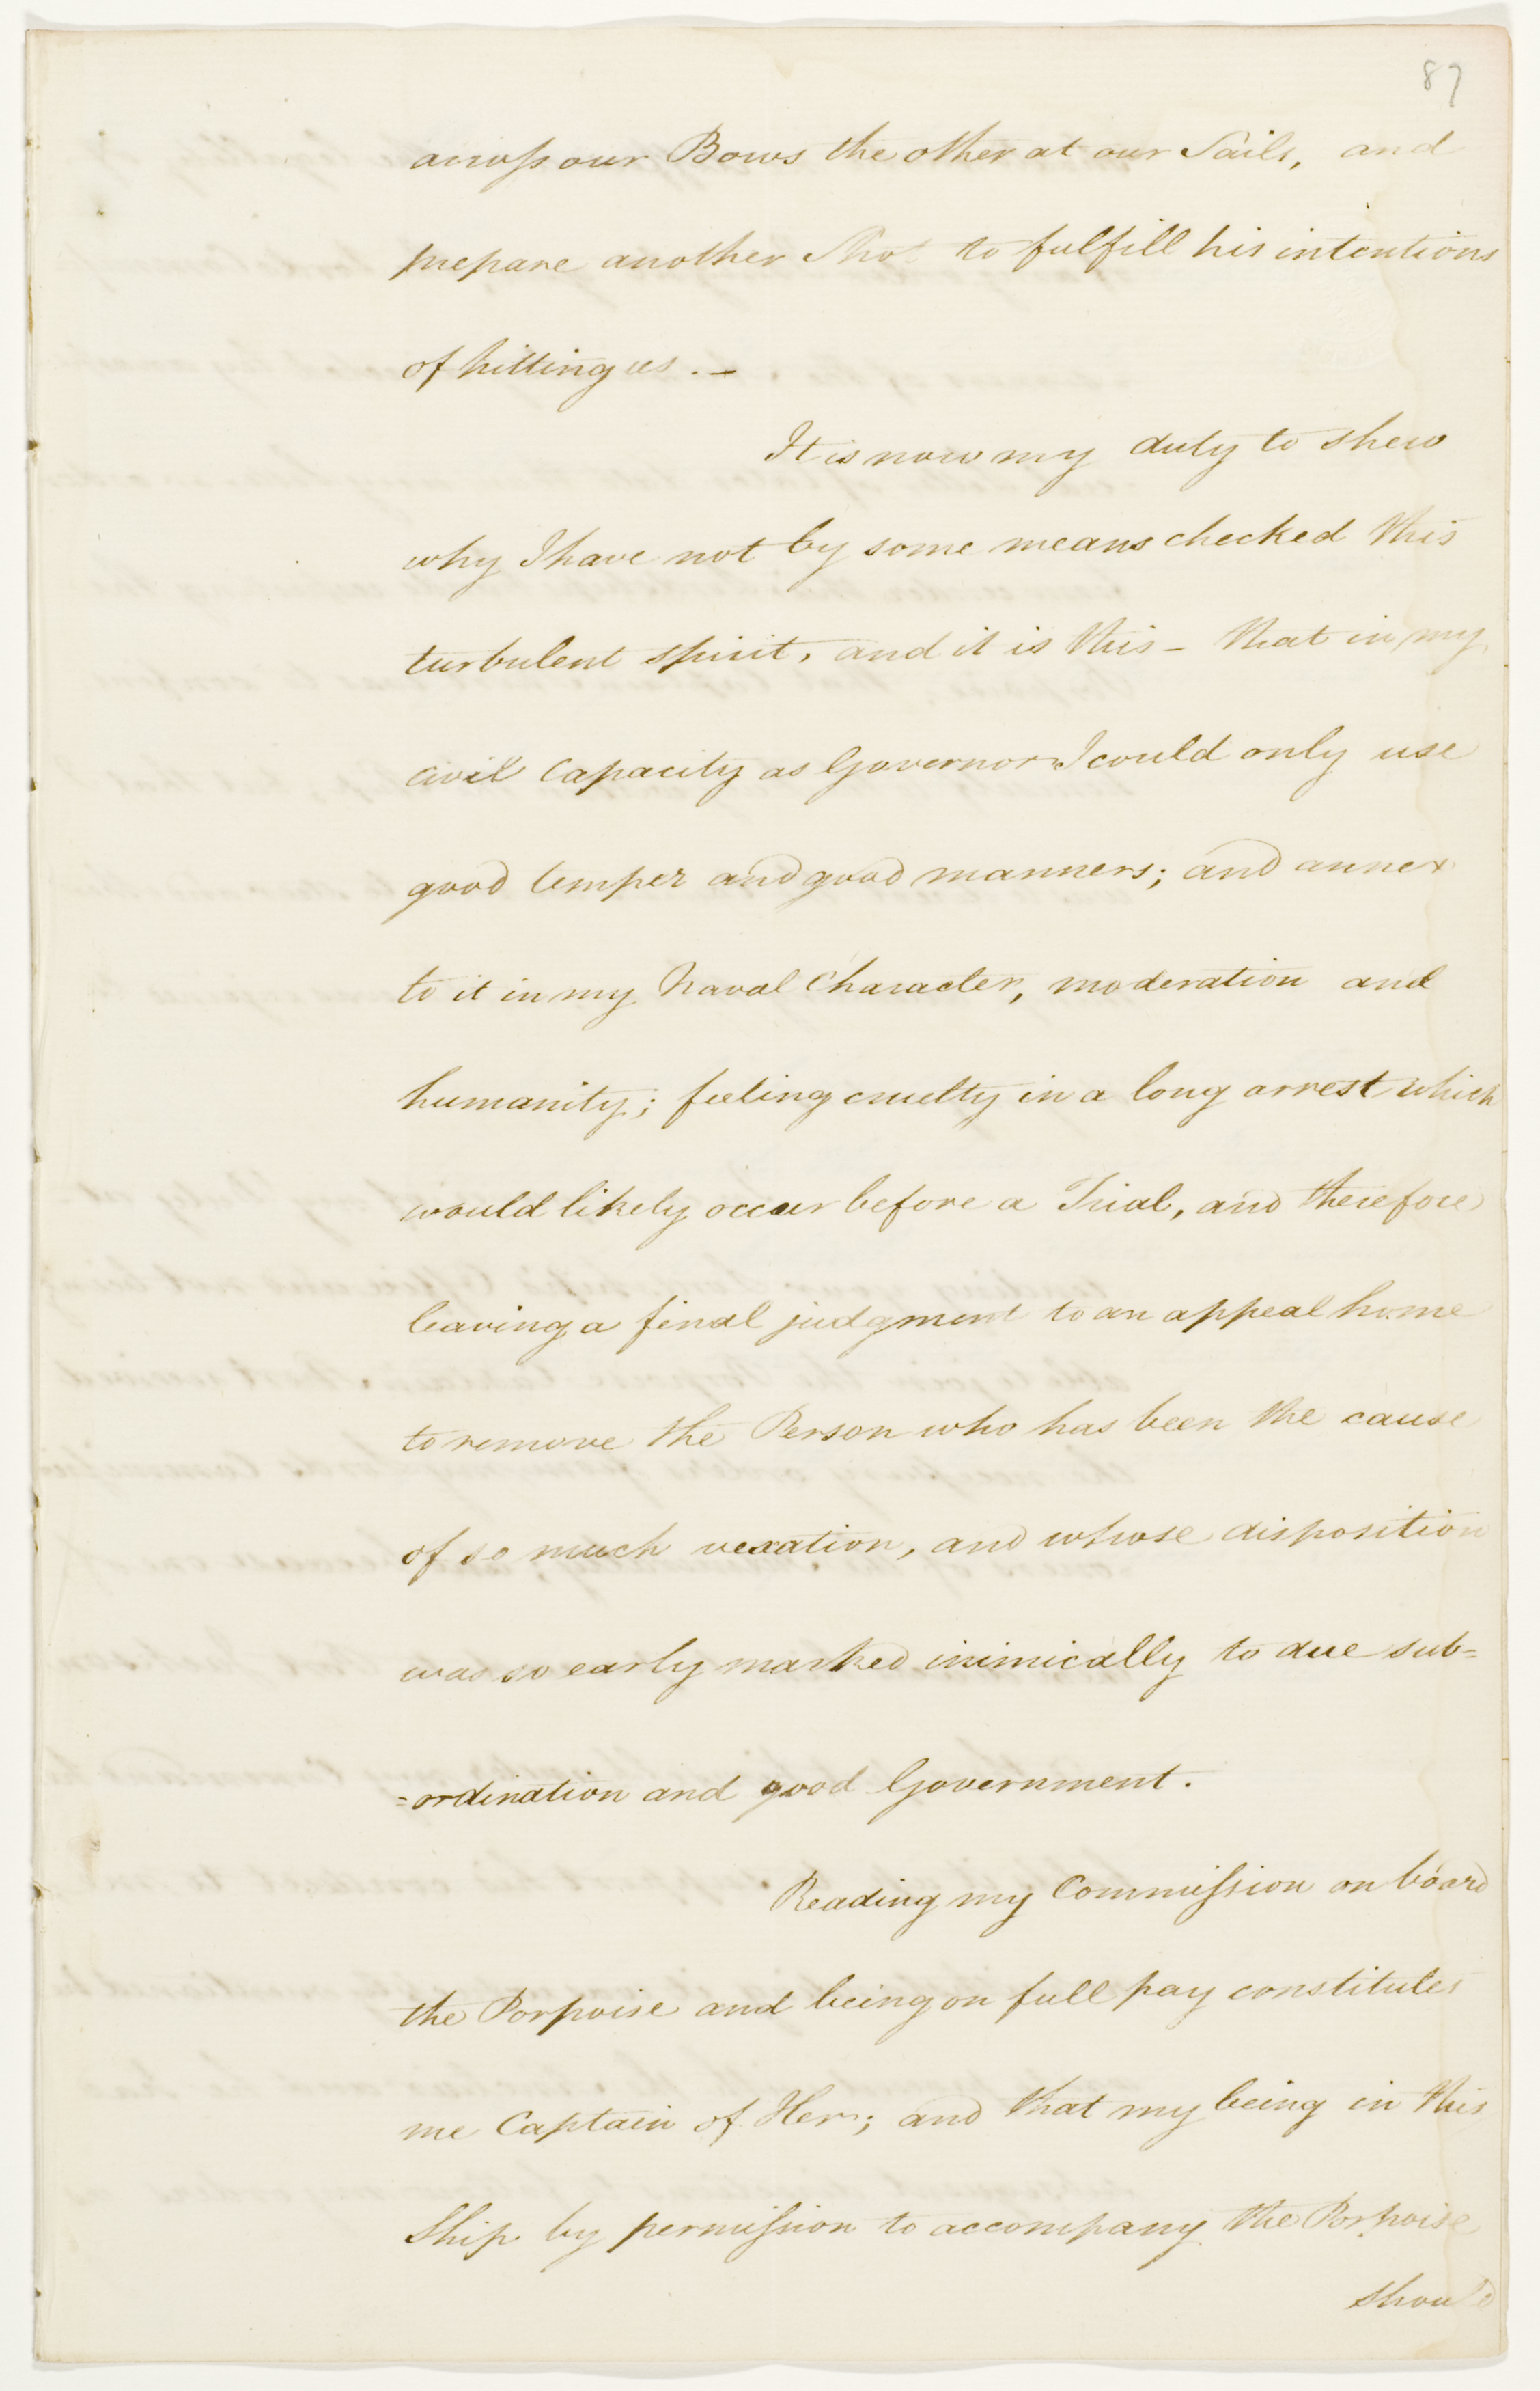 87
across our Bows the other at our Sails, and
prepare another Shot to fulfill his intentions
of hitting us . –
It is now my duty to shew
why I have not by some means checked this
turbulent spirit, and it is this – that in my
civil Capacity as Governor I could only use
good temper and good manners; and annex
to it in my Naval Character, moderation and
humanity; feeling cruelty in a long arrest which
would likely occur before a Trial, and therefore
leaving a final judgment to an appeal home
to remove the Person who has been the cause
of so much vexation, and whose disposition
was so early marked inimically to due sub=
=ordination and good Government.
Reading my Commission on board
the Porpoise and being on full pay constitutes
me Captain of Her; and that my being in this
Ship by permission to accompany the Porpoise
should